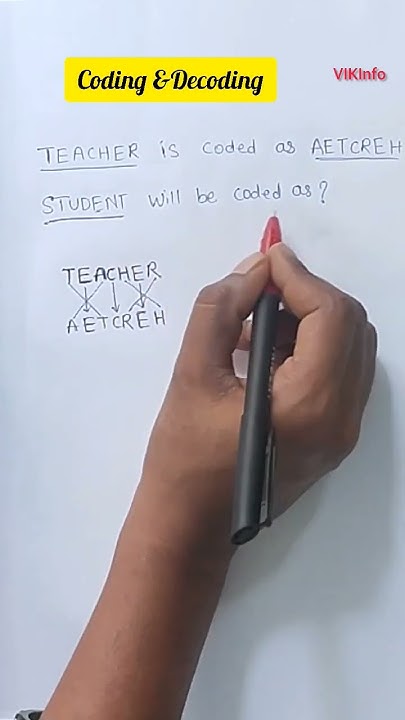 Coding & Decoding
VIKInfo
TEACHER is coded as AETCREH
STUDENT will be coded as?
TEACHER
AETCREH